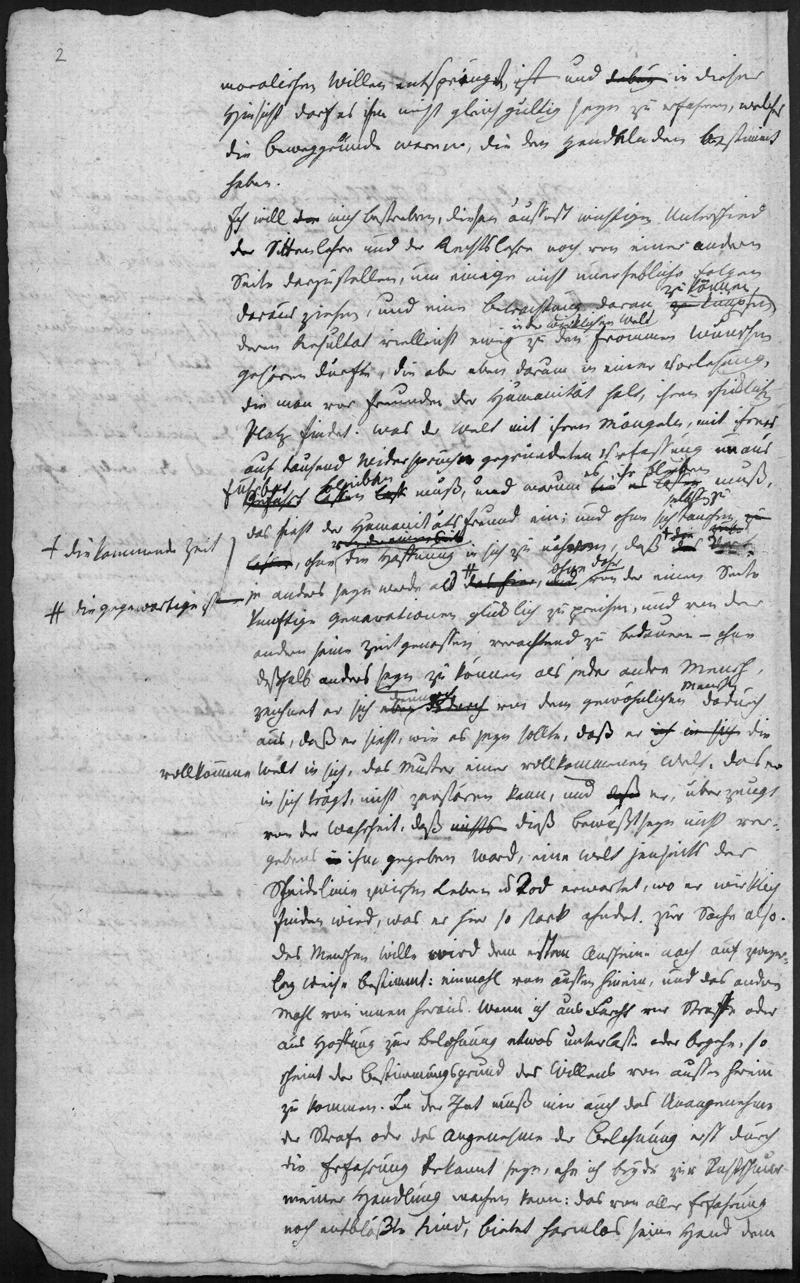 2
moralischen Willen entspringt, ist und dabey in dieser
Hinsicht darf es ihm nicht gleichgültig seyn zu erfahren, welches
die Beweggründe waren, die den Handelnden bestimmt
haben.
Ich will mich bestreben, diesen äusserst wichtigen Unterschied
der Sittenlehre und der Rechtslehre noch von einer andern
Seite darzustellen, um einige nicht unerhebliche Folgen
daraus ziehen, und eine Betrachtung daran zu knüpfen
zu können,
deren Resultat vielleicht ewig zu den frommen Wünschen
in der wirklichen Welt
gehören dürfte, die aber eben darum in einer Vorlesung,
die man vor Freunden der Humanität hält, ihren schicklichen
Platz findet. Was der Welt mit ihren Mängeln, mit ihrer
auf tausend Widersprüchen gegründeten Verfassung unaus
führbar bleiben muß, und warum es ihr bleiben muß,
das sieht der Humanitätsfreund ein; und ohne sich selbst zu täuschen
ohne die Hoffnung in sich zu nähren, daß
von der einen Seite
╪ die kommende Zeit
je anders seyn werde als # ohne daher von der einen Seite
# die gegenwärtige ist
künftige Generationen glücklich zu preisen, und von der
andern seine Zeitgenossen verachtend zu bedauern – ohne
deßhalb anders seyn zu können als jeder andre Mensch,
zeichnet er sich dennoch von dem gewöhnlichen Menschen dadurch
aus, daß er sieht, wie es seyn sollte, daß er die
vollkommne Welt in sich, das Muster einer vollkommenen Welt, das er
in sich trägt, nicht zerstören kann, und daß er, überzeugt
von der Wahrheit, daß nichts dieß Bewußtseyn nicht ver-
gebens ihm gegeben ward, eine Welt jenseits der
Scheidelinie zwischen Leben u Tod erwartet, wo er wirklich
finden wird, was er hier so stark ahndet. Zur Sache also.
Des Menschen Wille wird dem ersten Anscheine nach auf zweyer-
ley Weise bestimmt: einmahl von aussen hinein, und das andre
Mahl von innen heraus. Wenn ich aus Furcht vor Strafe oder
aus Hoffnung zur Belohnung etwas unterlasse oder begehe, so
scheint der Bestimmungsgrund des Willens von aussen herein
zu kommen. In der That muß mir auch das Unangenehme
der Strafe oder das Angenehme der Belohnung erst durch
die Erfahrung bekannt seyn, ehe ich beyde zur Richtschnur
meiner Handlung machen kann: das von aller Erfahrung
noch entblößte Kind, bietet harmlos seine Hand dem